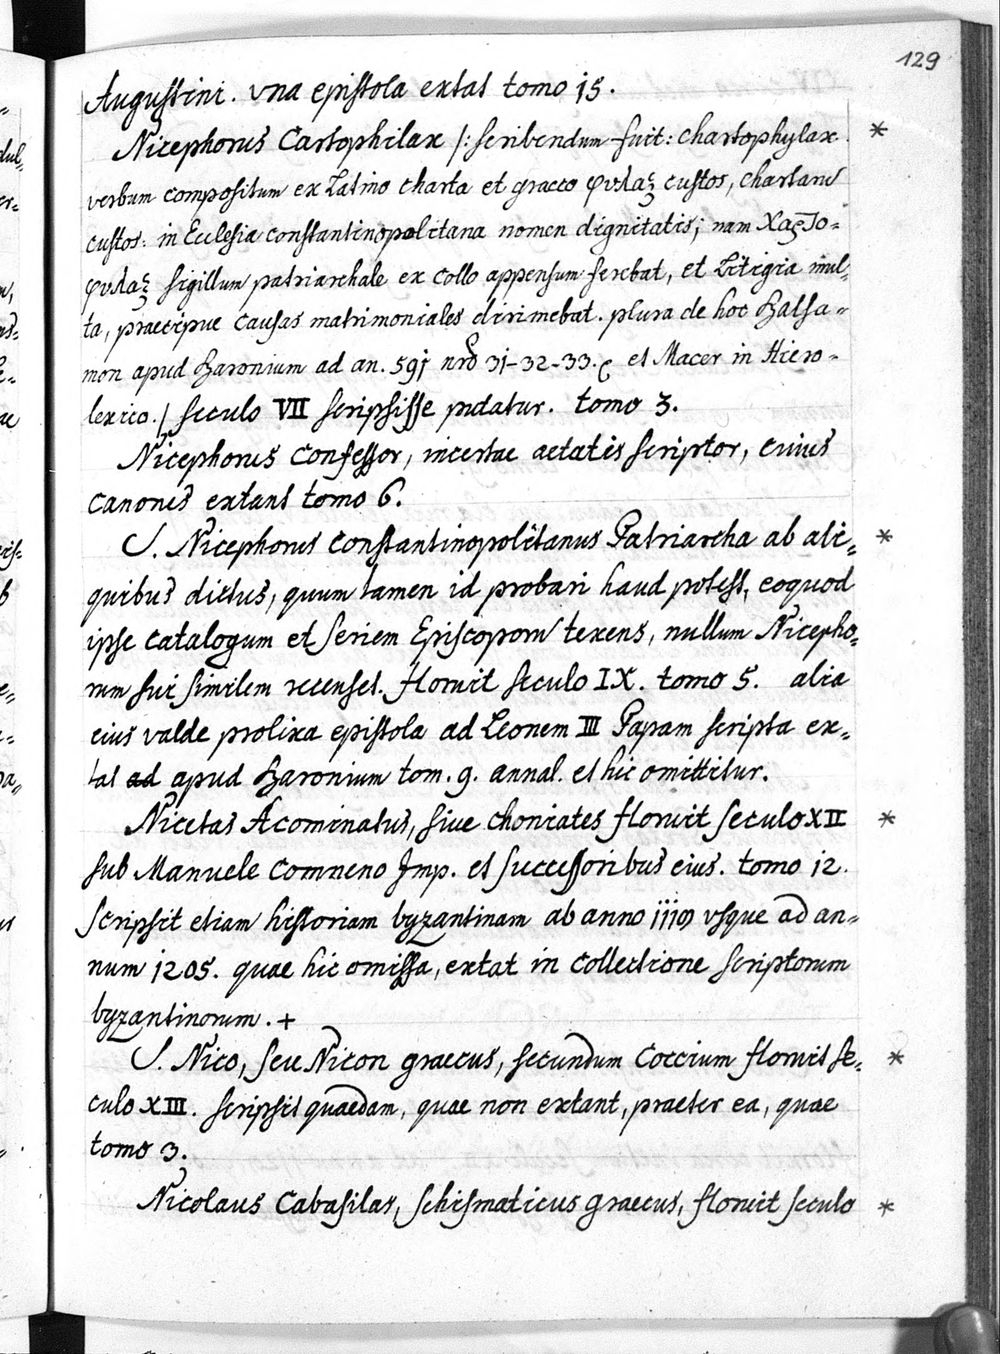 129
Augustini. vna epistola extat tomo 15.
Nicephorus Cartophilax /: scribendum fuit: chartophylax *
verbum compositum ex Latino charta et graeco φυλαξ custos, chartarum
custos: in Ecclesia constantinopolitana nomen dignitatis; nam χαρτο=
φυλαξ sigillum patriarchale ex collo appensum ferebat, et Litigia mul=
ta, praecipue causas matrimoniales dirimebat. plura de hoc Balsa=
mon apud Baronium ad an. 591 nro 31-32-33. et Macer in Hiero=
lexico. / seculo VII scripsisse putatur. tomo 3.
Nicephorus Confessor, incertae aetatis scriptor, cuius
canones extant tomo 6.
S. Nicephorus constantinopolitanus Patriarcha ab ali= *
quibus dictus, quum tamen id probari haud potest, eoquod
ipse catalogum et seriem Episcoporum texens, nullum Nicepho=
rum sui similem recenset. floruit seculo IX. tomo 5. alia
eius valde prolixa epistola ad Leonem III Papam scripta ex=
tat ad apud Baronium tom. 9. annal. et hic omittitur.
Nicetas Acominatus, siue choniates floruit seculo XII *
sub Manuele Comneno Imp. et successoribus eius. tomo 12.
scripsit etiam historiam byzantinam ab anno 1119 vsque ad an=
num 1205. quae hic omissa, extat in collectione scriptorum
byzantinorum. +
S. Nico, seu Nicon graecus, secundum Coccium floruit se= *
culo XIII. scripsit quaedam, quae non extant, praeter ea, quae
tomo 3.
Nicolaus Cabasilas, schismaticus graecus, floruit seculo *